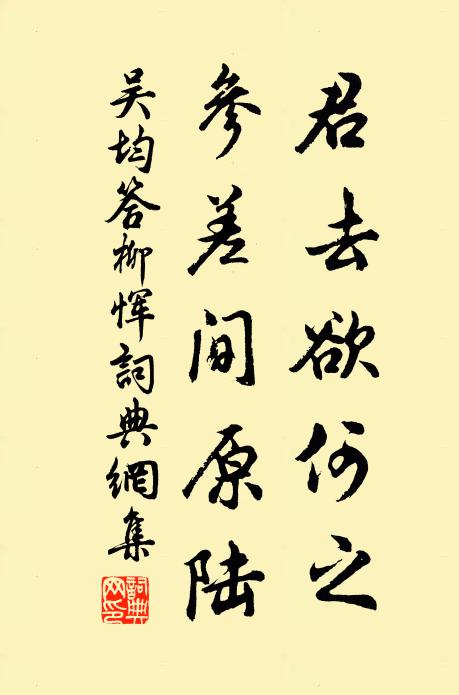 君去欲何之
參差间原陆
吴均答柳恽詞典網集
詞典網印